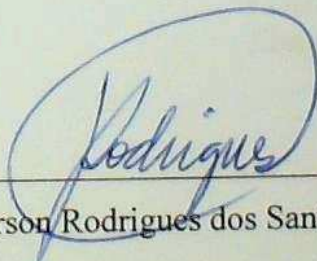 Rodrigues
rson Rodrigues dos San